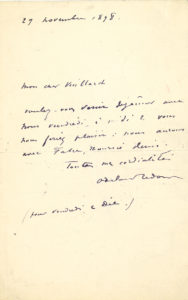 29 novembre 1898
mon cher Vuillard
voulez-vous venir déjeuner avec
nous vendredi, à midi ? vous
nous feriez plaisir : nous aurons
avec Maurice Denis.
Toutes mes cordialités
Odilon Redon
(pour vendredi 2 Déc.)